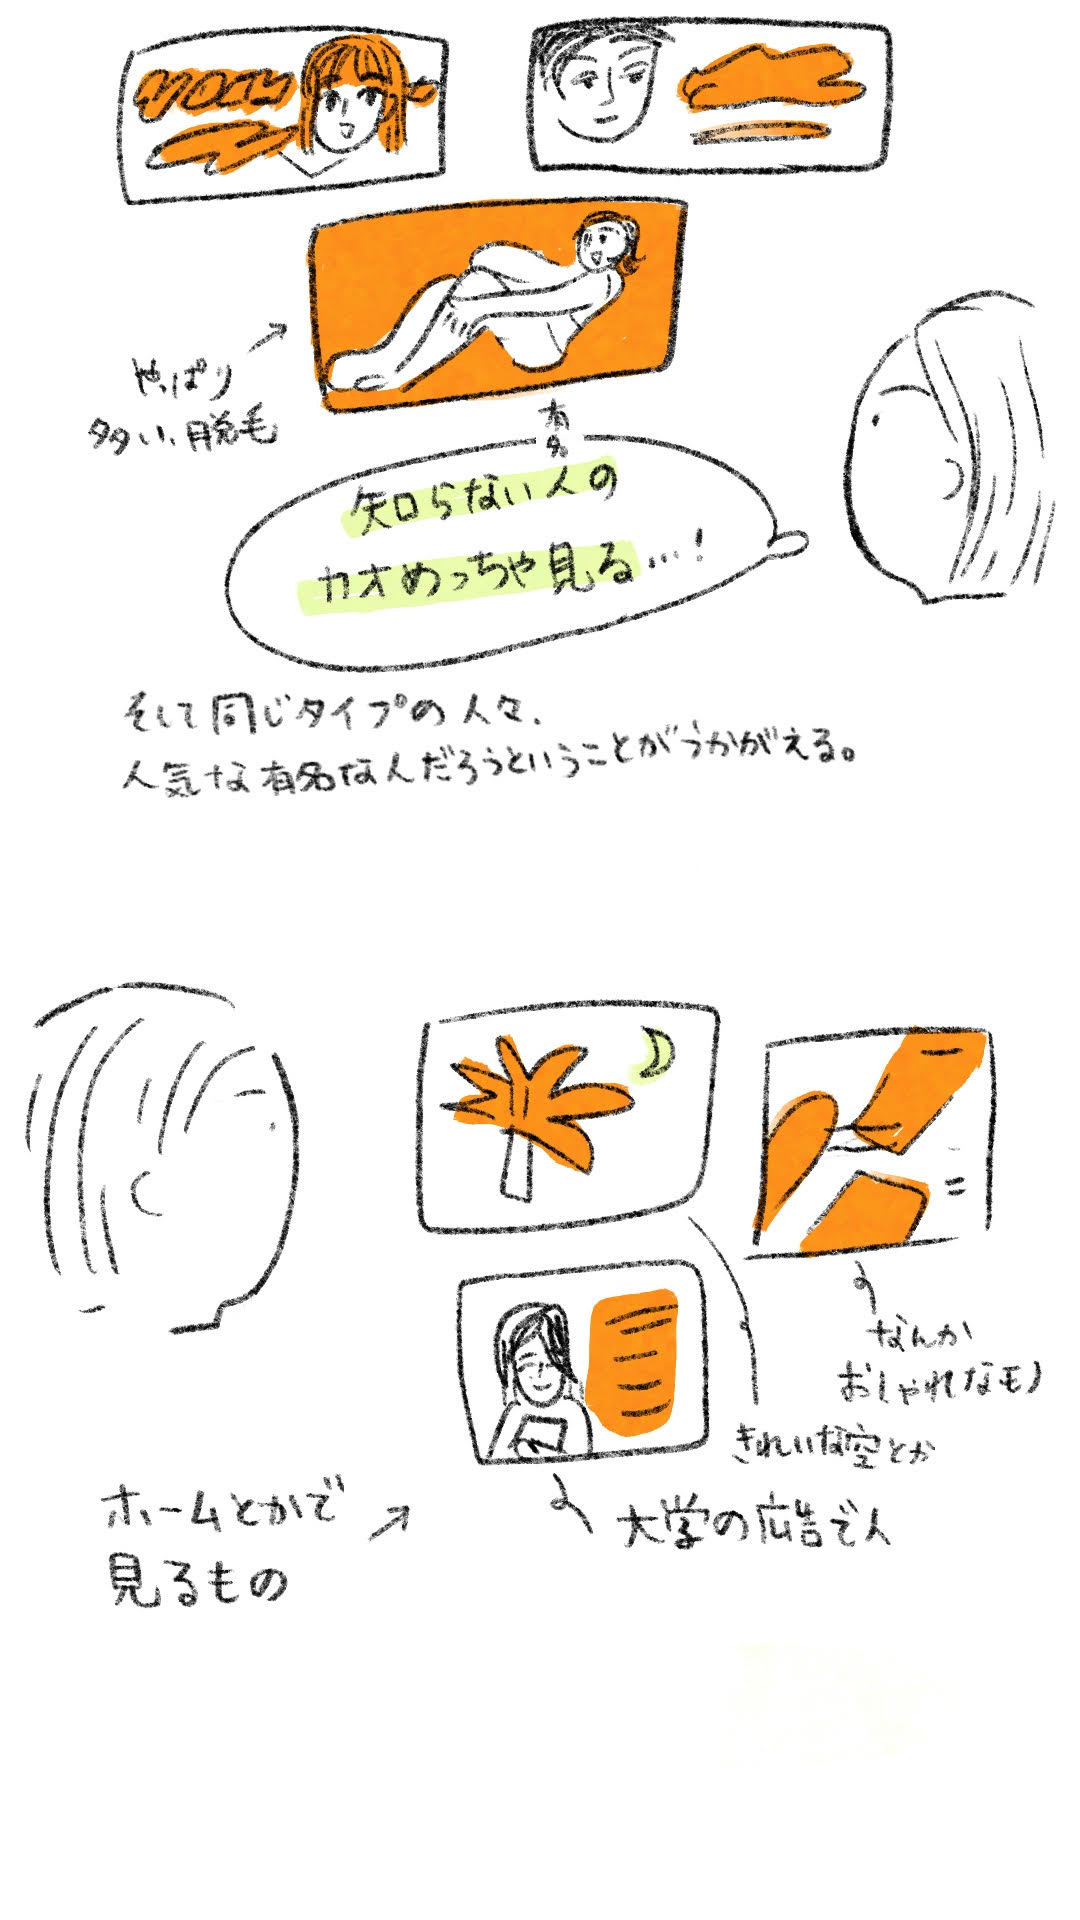 やっぱり
多い、脱毛
有名
知らない人の
カオめっちゃ見る…!
そして同じタイプの人々、
人気な有名な人だろうということがうかがえる。
なんか
おしゃれなモノ
きれいな空とか
大学の広告で人
ホームとかで
見るもの